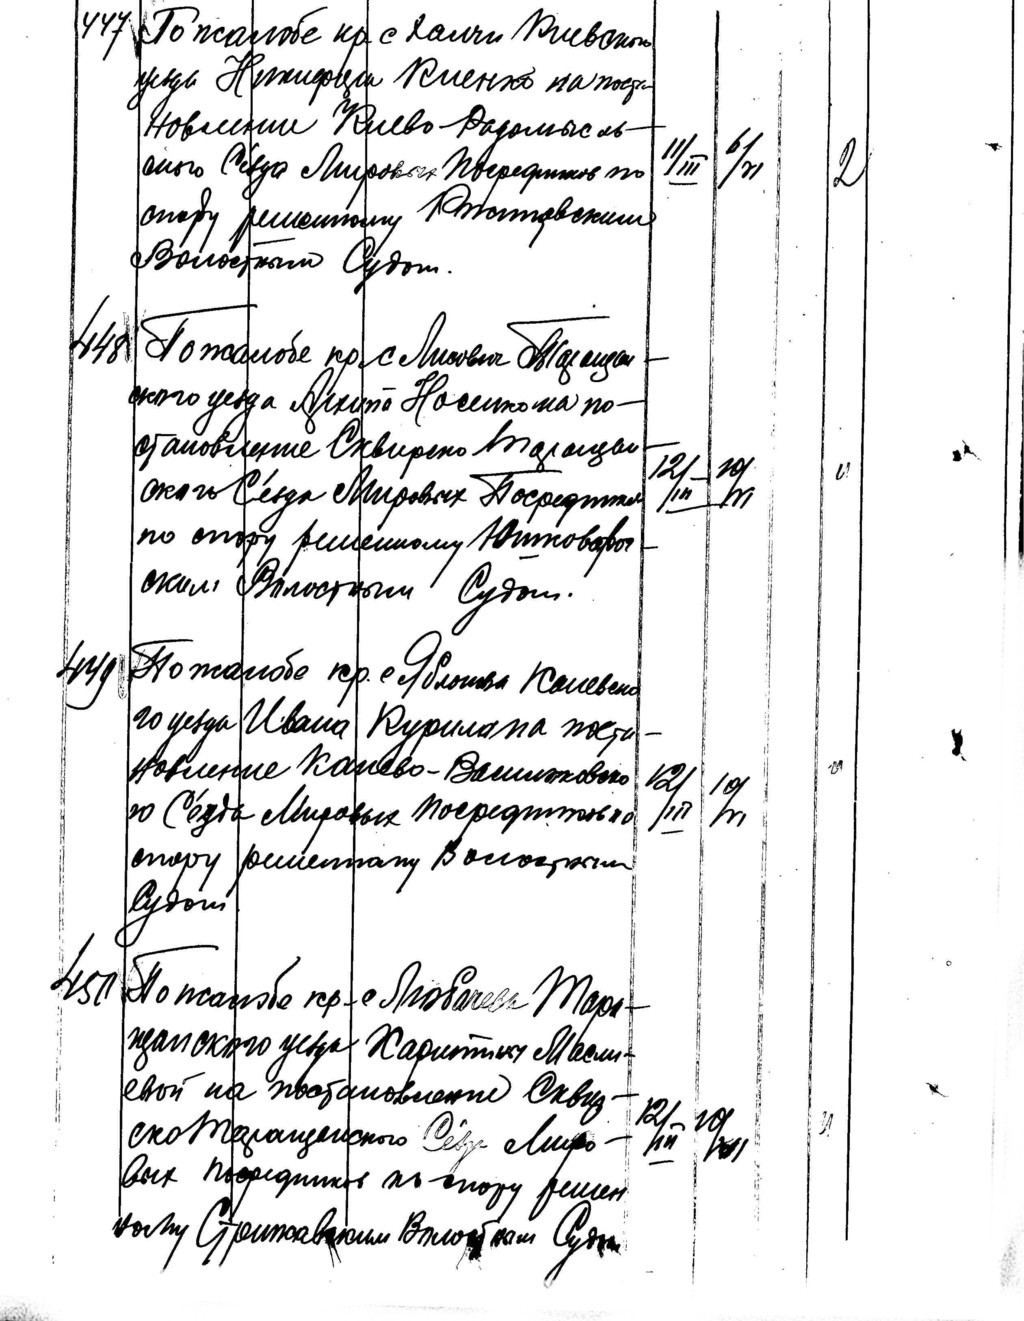 447 По жалобе кр. с. Халчи Киевского
уезда Никифора Киенко на поста-
новление Киево-Радомысль-
ского Съезда Мировых Посредников по 11/III 6/VI 2
спору решенному
Волостным Судом.
448 По жалобе кр. с Лисович Таращан-
ского уезда Архипа Носенко на по-
становление Сквирско Таращан-
ского Съезда Мировых Посредников 12/III 10/VI "
по спору решенному
ским Волостным Судом.
449 По жалобе кр. с Яблонова Каневско
го уезда Ивана Курила на поста-
новление Канево-Васильковско
го Съезда Мировых Посредников по 12/III 10/VI "
спору решенному Волостным
Судом
450 По жалобе кр. с Тара-
щанского уезда Харитины Масли-
евой на постановление Сквир-
ско Таращанского Съезда Миро- 12/III 10/VI "
вых Посредников по спору решен
ному Стрижавским Волостным Судом